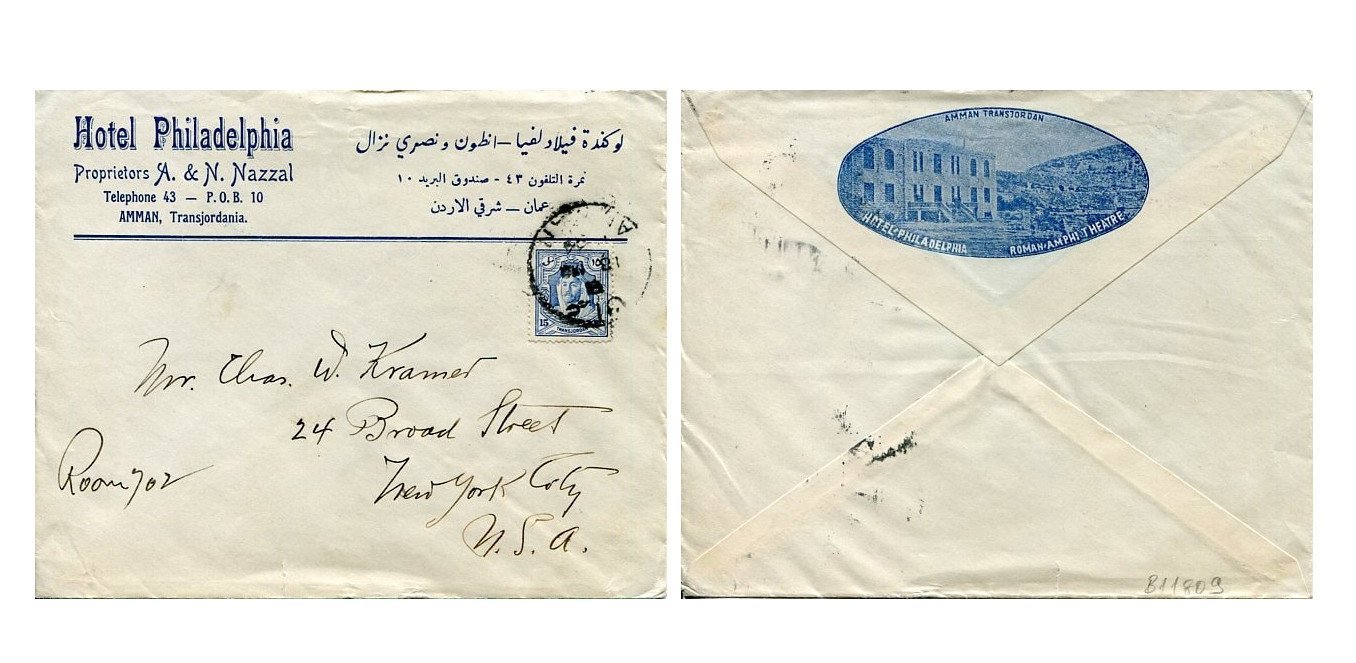 Hotel Philadelphia
Proprietors A. & N. Nazzal
Telephone 43 — P.O.B. 10
AMMAN, Transjordania.
لوكندة فيلادلفيا — انطون و نصري نزال
نمرة التلفون ٤٣ - صندوق البريد ١٠
عمان — شرقي الاردن
١٥
15
TRANSJORDAN
Mr. Chas. W. Kramer
24 Broad Street
New York City
U.S.A.
Room 702
AMMAN TRANSJORDAN
HOTEL-PHILADELPHIA
ROMAN-AMPHI THEATRE
B11809